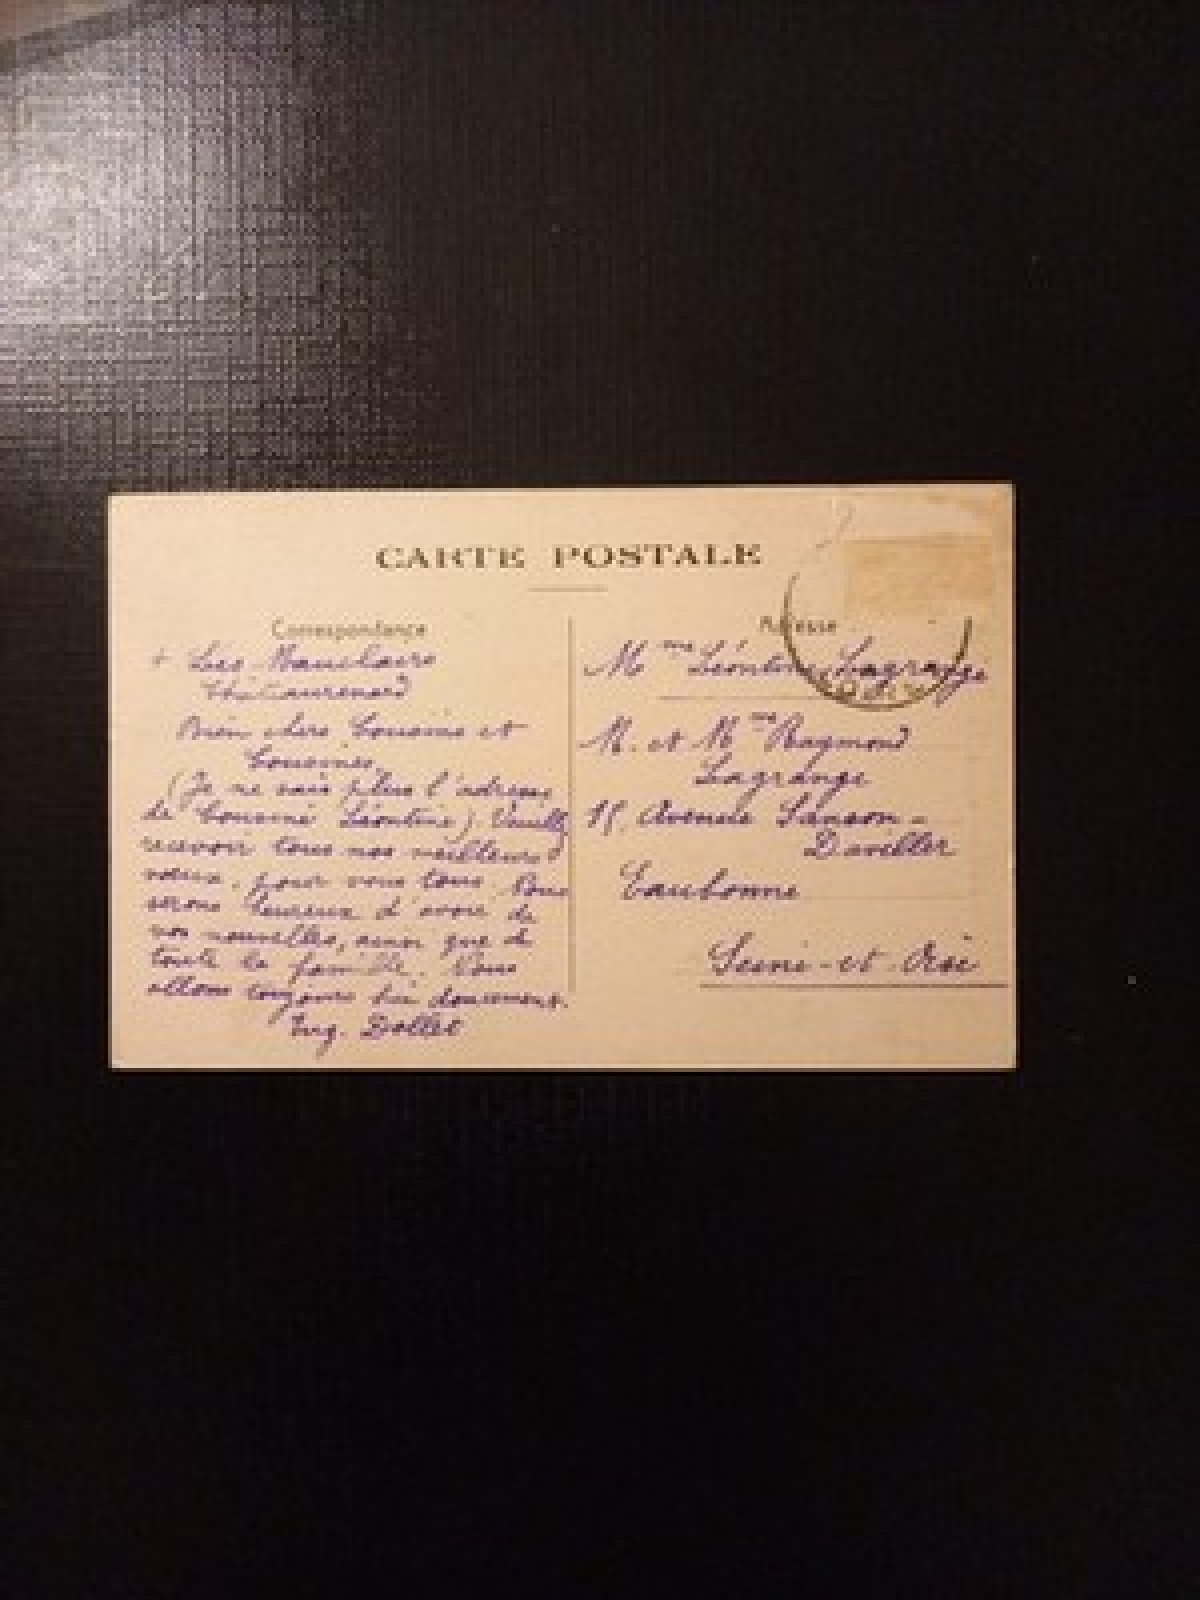 CARTE POSTALE
Correspondance
Adresse
+ Les
Châteaurenard
Bien chers Cousins et
Cousines,
(Je ne sais plus l'adresse
de Cousine Léontine) Veuillez
recevoir tous nos meilleurs
vœux, pour vous tous. Nous
serons heureux d'avoir de
vos nouvelles, ainsi que de
toute la famille. Nous
allons toujours bien doucement.
Eug. Dollet
Mme Léontine Lagrange
M. et Mme Raymond
Lagrange
Avenue Sanson-
Davillier
Eaubonne
Seine-et-Oise